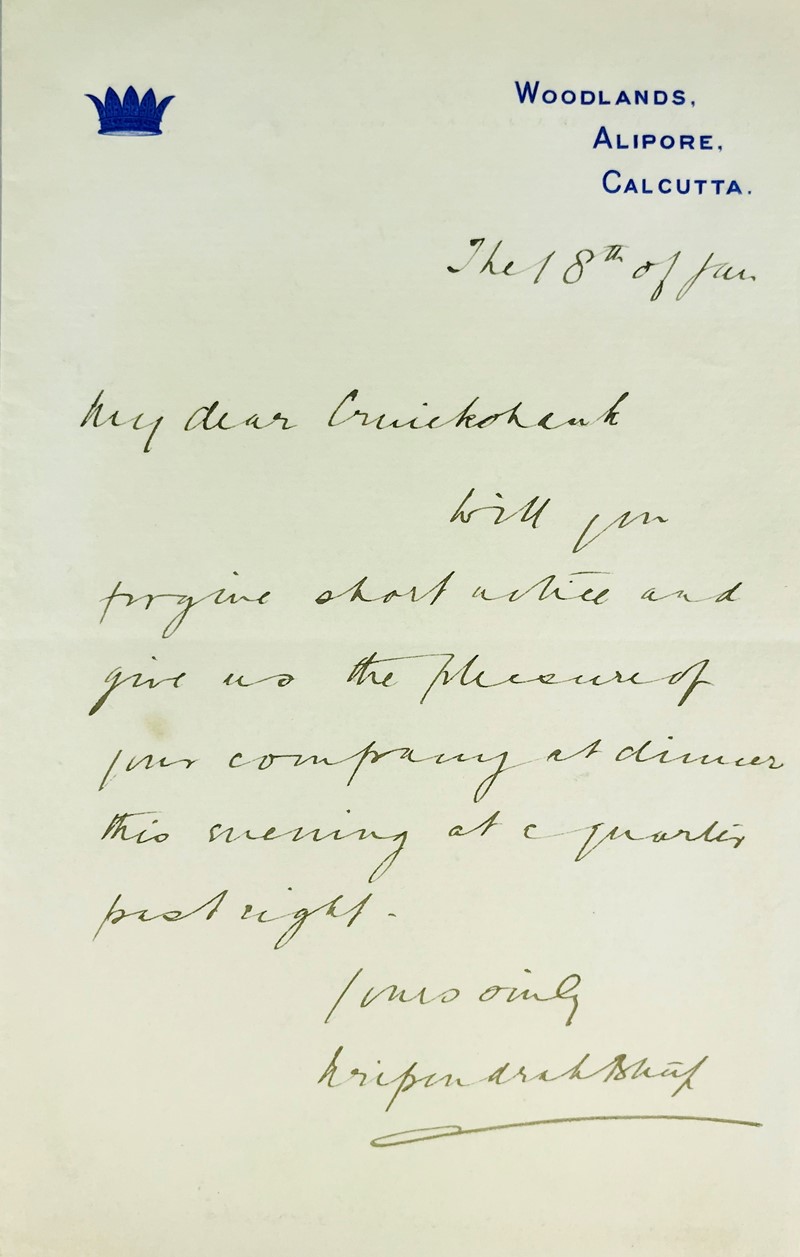 WOODLANDS,
ALIPORE,
CALCUTTA.
The 18th of Jan
My dear Cruickshank
Will you
forgive short notice and
give us the pleasure of
your company at dinner
this evening at a quarter
past eight.
Yours sinly
Nripendrah Bhup